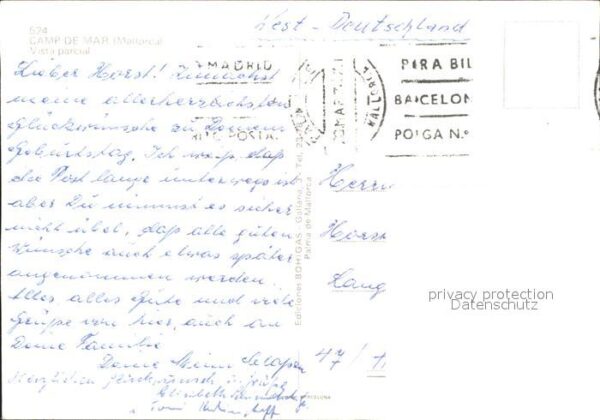 West - Deutschland
524
CAMP DE MAR (Mallorca)
Vista parcial
MADRID
PARA BIL
BARCELON
POLGA N.º
MALLORCA
Lieber Horst! Zunächst
meine allerherzlichsten
Glückwünsche zu Deinem
Geburtstag. Ich weiß, daß
die Post lange unterwegs ist
aber Du nimmst es sicher
nicht übel, daß alle guten
Wünsche auch etwas später
angenommen werden.
Alles, alles Gute und viele
Grüße von hier, auch an
Deine Familie
Deine
Herzlichen Glückwunsch
Elisabeth
Ediciones BOHIGAS - Galiana, Tel. 23
Palma de Mallorca
Herrn
Horst
Haug
47/
privacy protection
Datenschutz